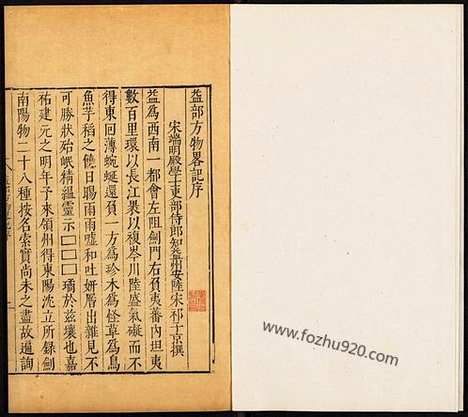 益部方物畧記序
宋端明殿學士吏部侍郎知益州安陸宋祁子京撰
益爲西南一都會左阻劍門右負夷蕃內坦夷
數百里環以長江裹以複岑川陸盛氣礙而不
得東回薄蜿蜒還負一方爲珍木爲怪草爲鳥
魚芋稻之饒日賜雨雨噓和吐妍層出雜見不
可勝狀殆岷精井靈示□□□璚於茲壤也嘉
祐建元之明年予來領州得東陽沈立所錄劍
南陽物二十八種按名索實尚未之盡故遍詢
www.fozhu920.com